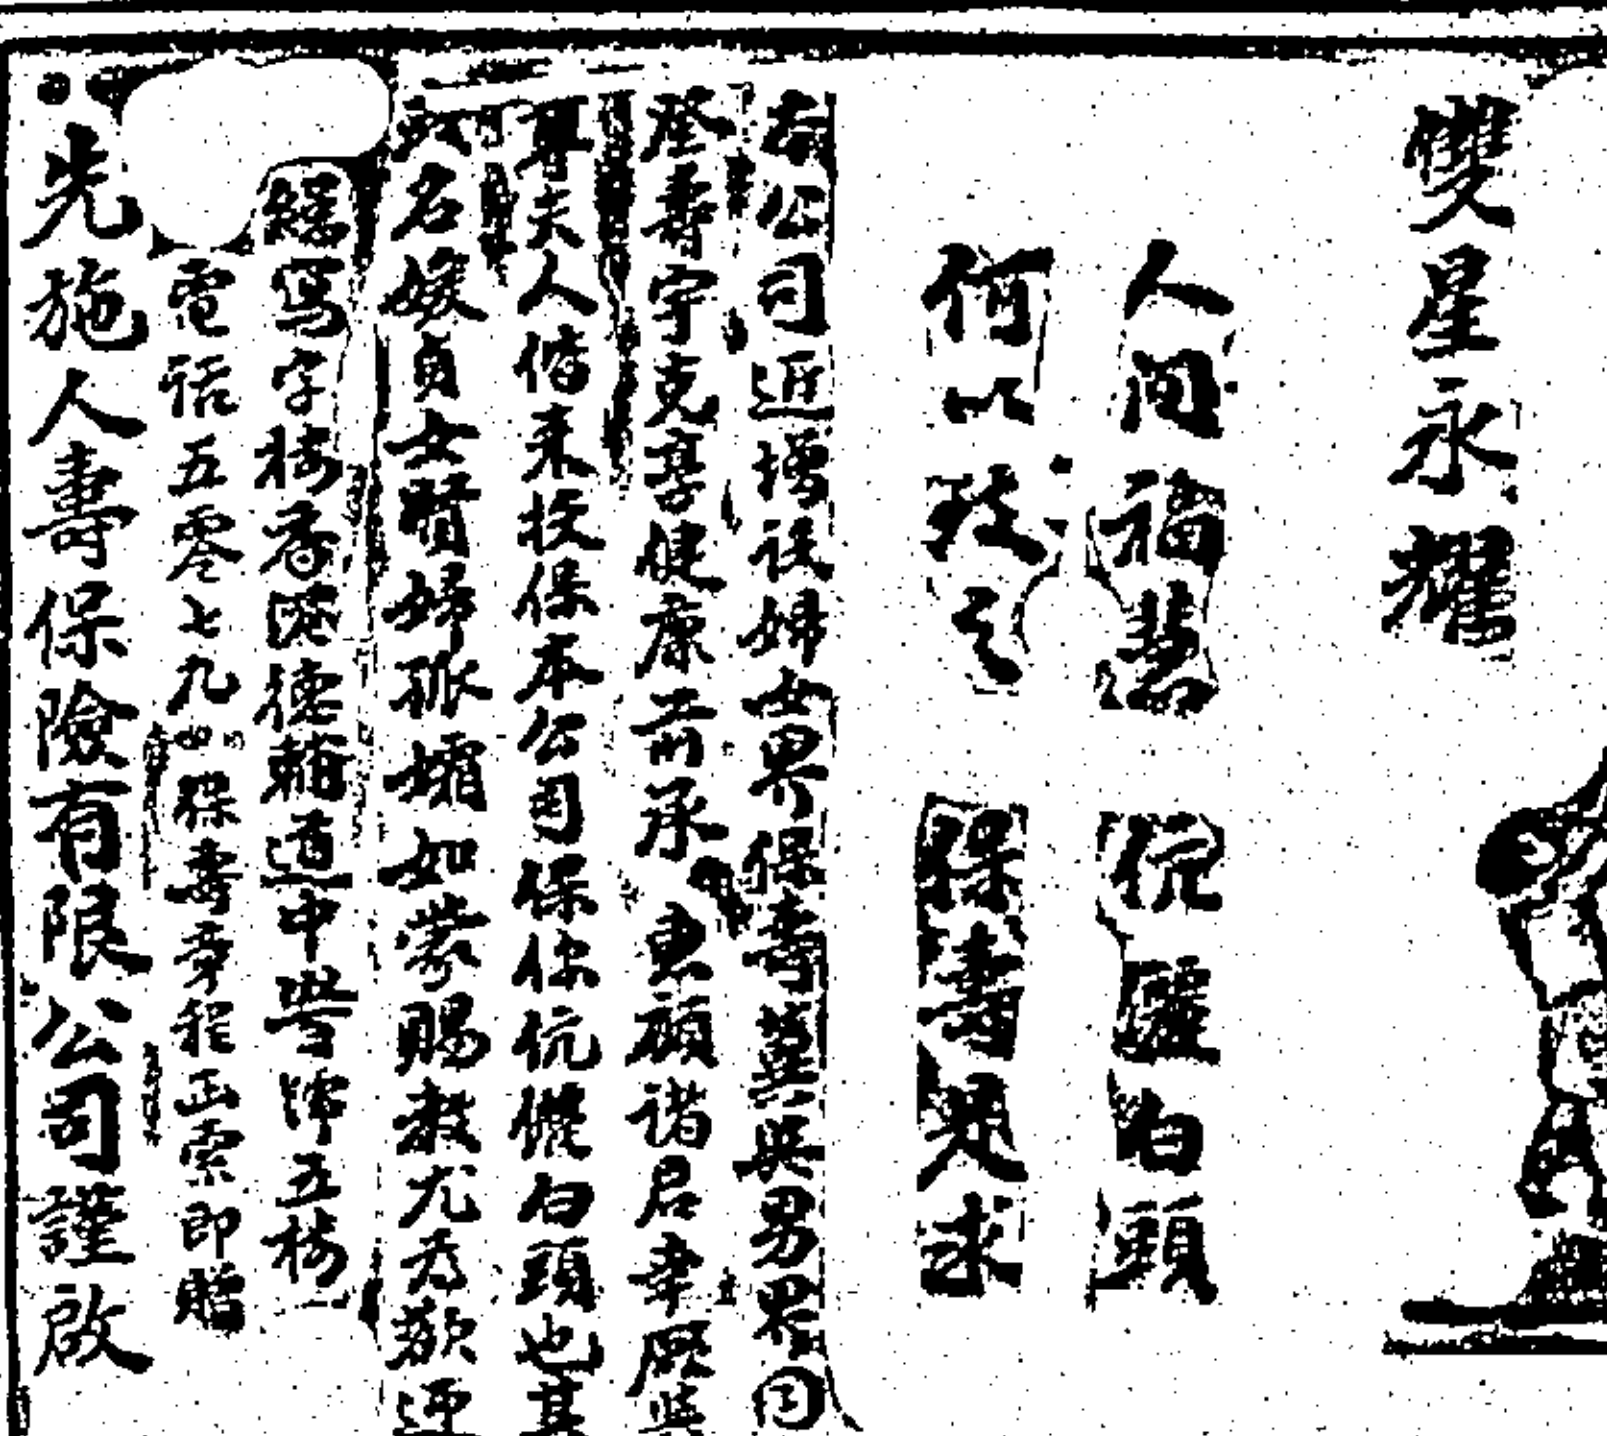 雙星永耀
人間福慧 伉儷白頭
何以致之 保壽是求
本公司近增設婦女界保壽冀與男界同
登壽宇克享健康前承 惠顧諸君幸
尊夫人偕來投保本公司保你伉儷白頭也其
名媛貞女賢婦孤孀如蒙賜教尤為歡迎
寫字樓香港德輔道中 五樓
電話五零七九 保壽章程函索即贈
先施人壽保險有限公司謹啟